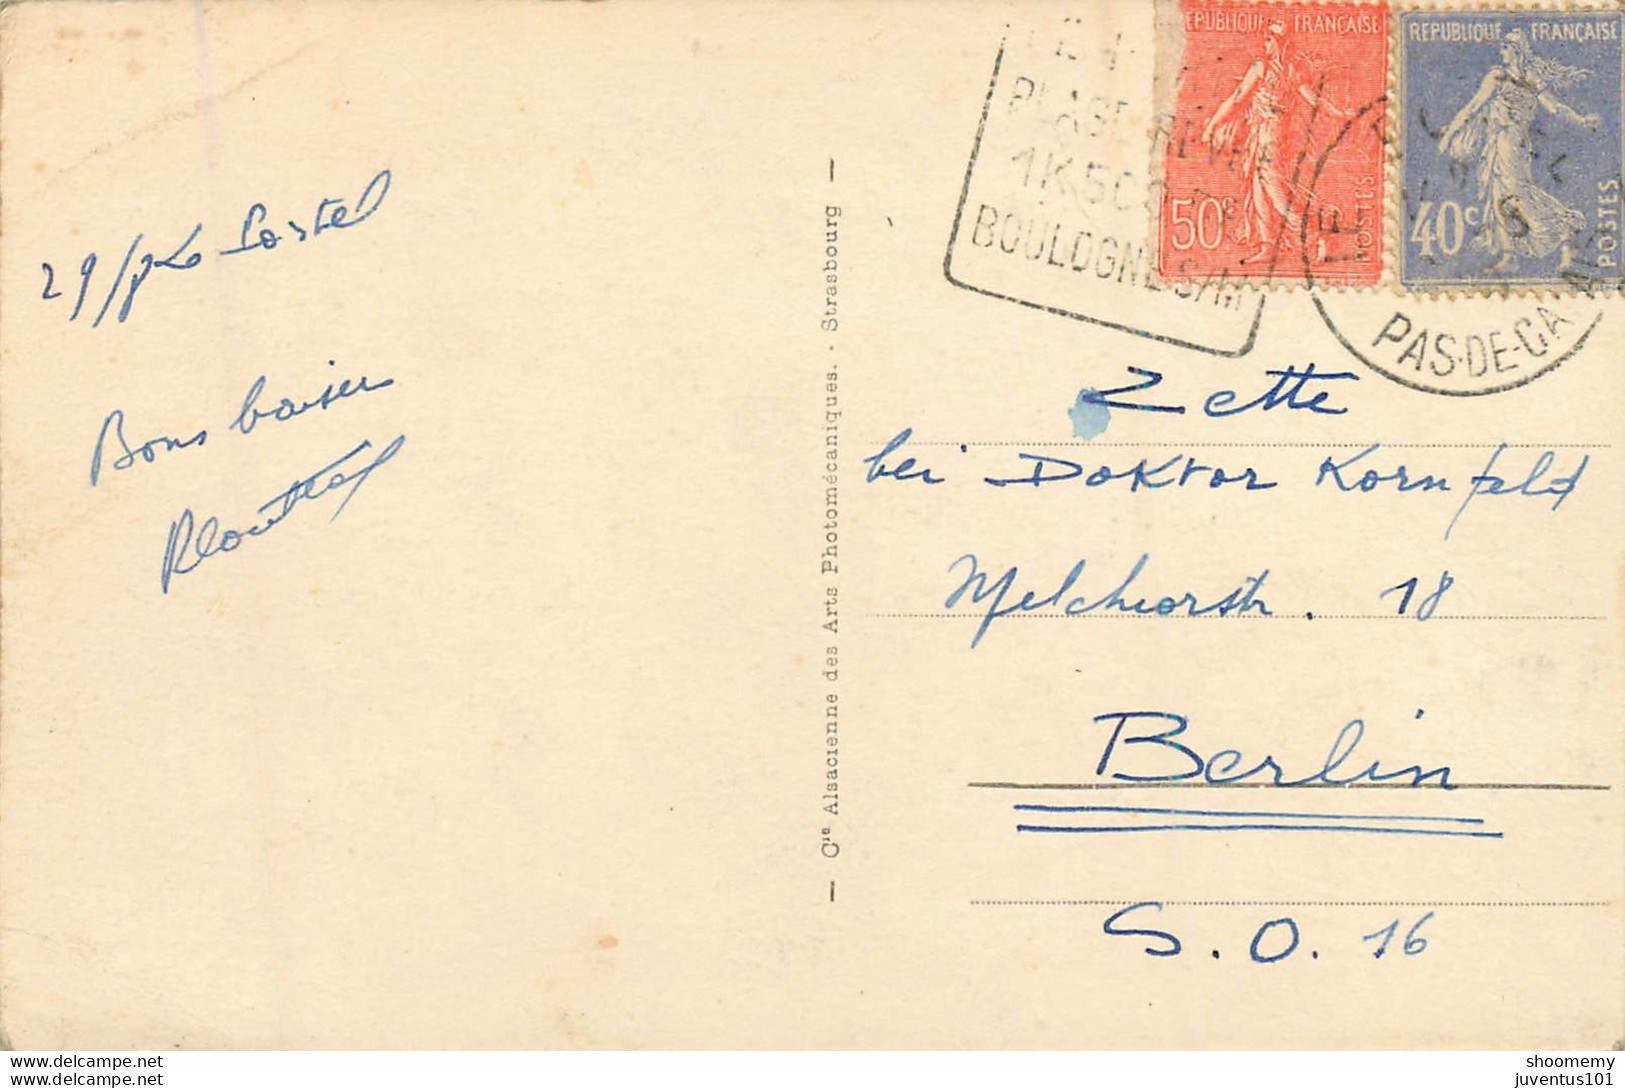 PLAGE
1K500
BOULOGNE S/M
REPUBLIQUE FRANÇAISE
50c
POSTES
REPUBLIQUE FRANÇAISE
40c
POSTES
PAS-DE-CALAIS
29/
Bons baisers
Cie Alsacienne des Arts Photomécaniques. - Strasbourg
Zette
bei Doktor Kornfeld
Melchiorstr. 18
Berlin
S.O. 16
www.delcampe.net
www.delcampe.net
shoomemy
juventus101